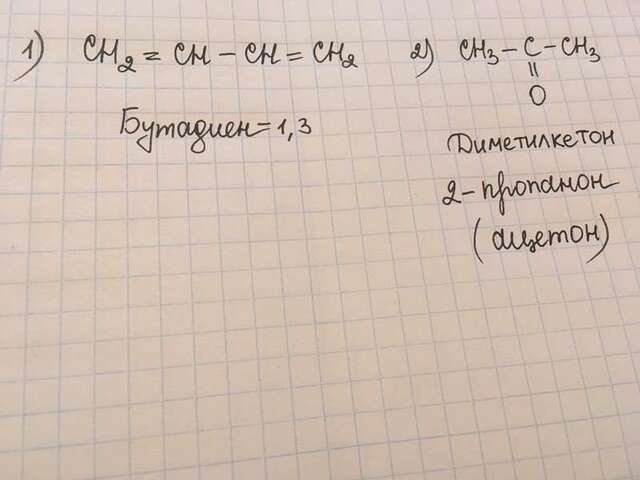 1) CH2 = CH - CH = CH2
Бутадиен-1,3
2) CH3 - C - CH3
||
O
Диметилкетон
2-пропанон
(ацетон)